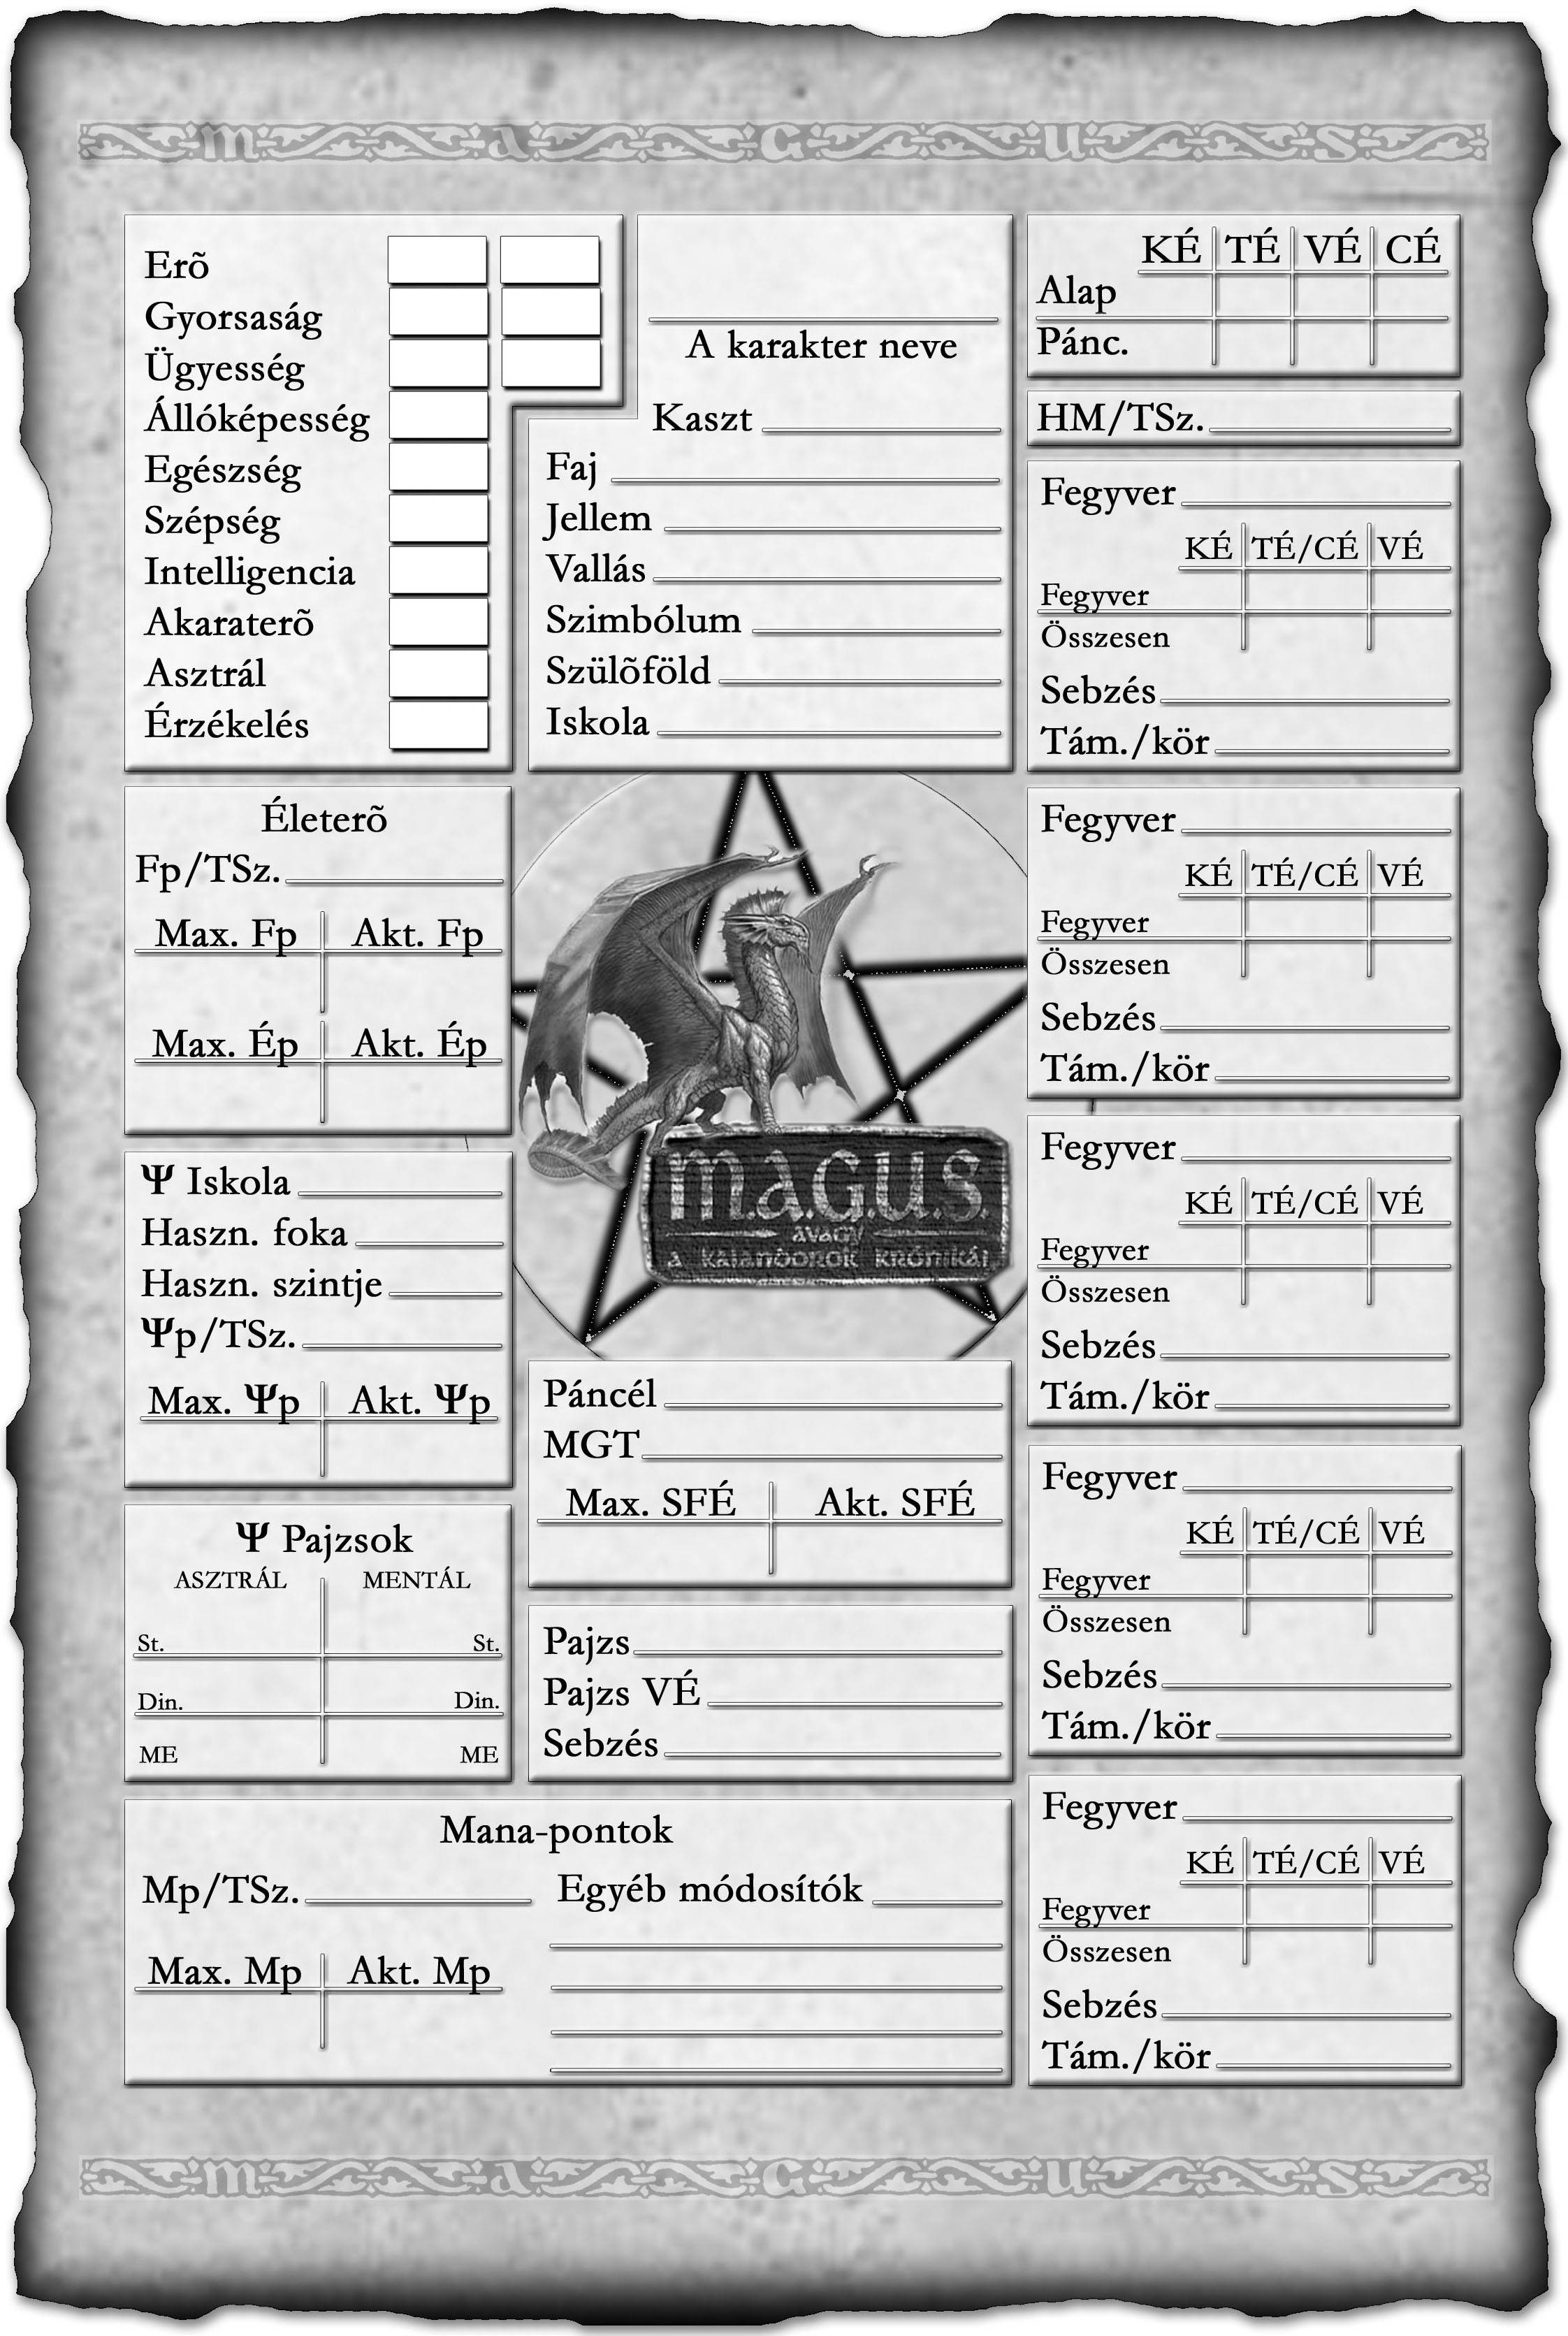 M A G U S
Erõ
Gyorsaság
Ügyesség
Állóképesség
Egészség
Szépség
Intelligencia
Akaraterõ
Asztrál
Érzékelés
A karakter neve
Kaszt
Faj
Jellem
Vallás
Szimbólum
Szülõföld
Iskola
KÉ TÉ VÉ CÉ
Alap
Pánc.
HM/TSz.
Fegyver
KÉ TÉ/CÉ VÉ
Fegyver
Összesen
Sebzés
Tám./kör
Életerõ
Fp/TSz.
Max. Fp Akt. Fp
Max. Ép Akt. Ép
Fegyver
KÉ TÉ/CÉ VÉ
Fegyver
Összesen
Sebzés
Tám./kör
M.A.G.U.S.
AVAGY
A KALANDOROK KRÓNIKÁI
Ψ Iskola
Haszn. foka
Haszn. szintje
Ψp/TSz.
Max. Ψp Akt. Ψp
Fegyver
KÉ TÉ/CÉ VÉ
Fegyver
Összesen
Sebzés
Tám./kör
Páncél
MGT
Max. SFÉ Akt. SFÉ
Ψ Pajzsok
ASZTRÁL MENTÁL
St. St.
Din. Din.
ME ME
Pajzs
Pajzs VÉ
Sebzés
Fegyver
KÉ TÉ/CÉ VÉ
Fegyver
Összesen
Sebzés
Tám./kör
Mana-pontok
Mp/TSz. Egyéb módosítók
Max. Mp Akt. Mp
Fegyver
KÉ TÉ/CÉ VÉ
Fegyver
Összesen
Sebzés
Tám./kör
M A G U S